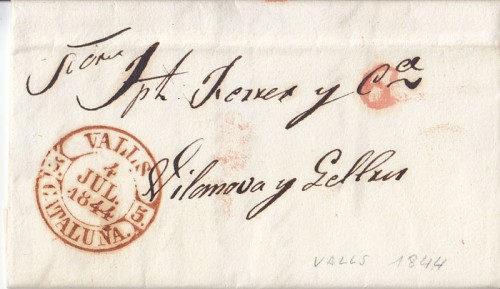 Jph Ferrer y Cª
Vilanova y Geltru
VALLS
1
JUL.
1844
CATALUÑA.
VALLS 1844